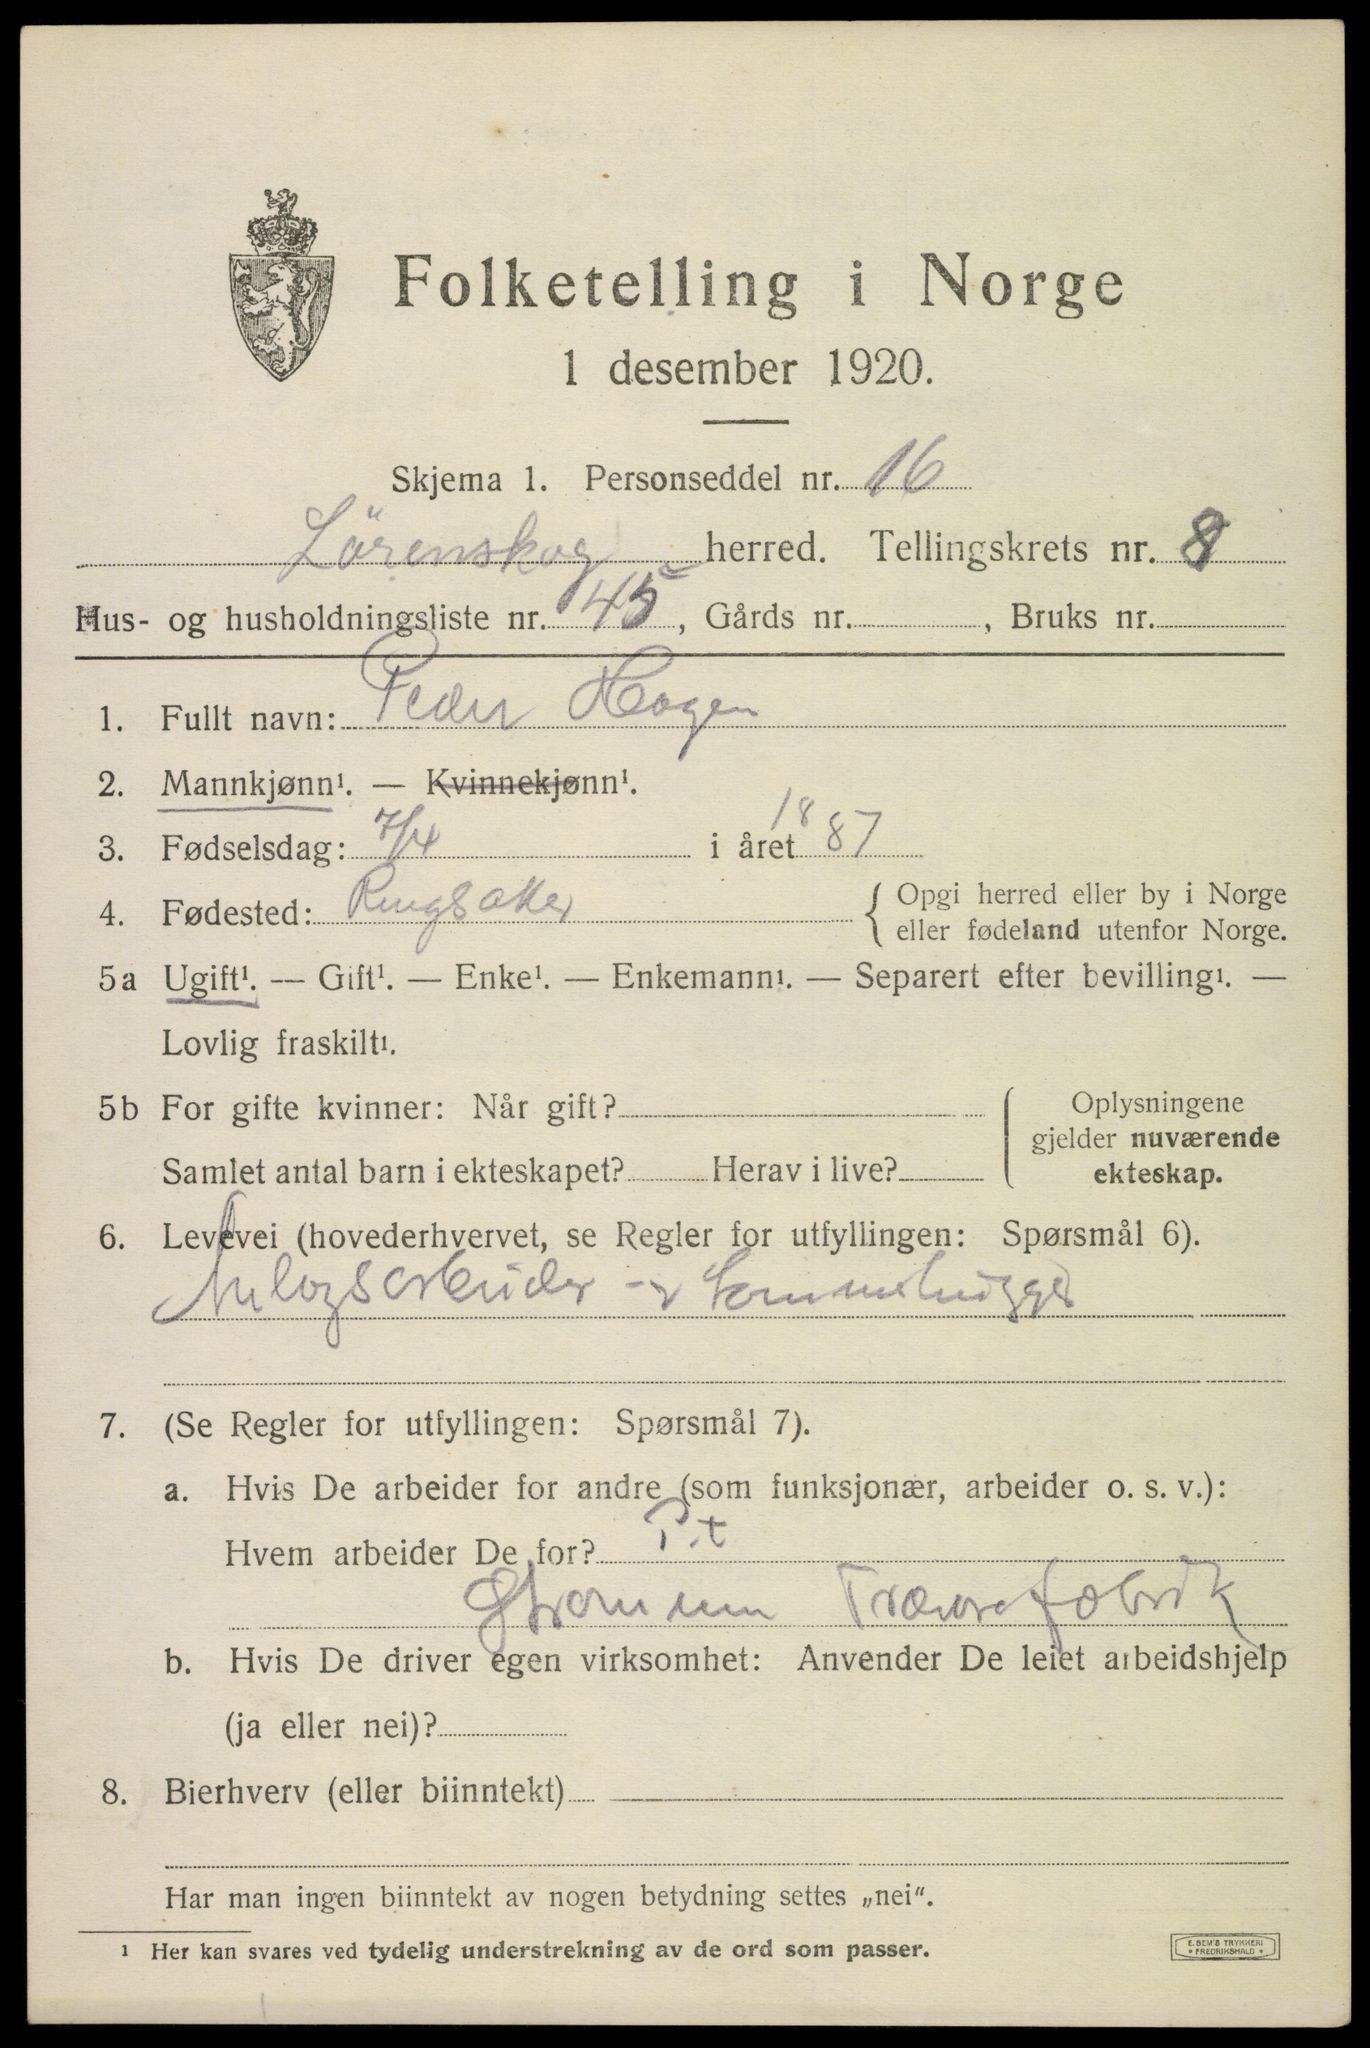 Folketelling i Norge
1 desember 1920.
Skjema 1. Personseddel nr. 16
Lörenskog herred. Tellingskrets nr. 8
Hus- og husholdningsliste nr. 45, Gårds nr. , Bruks nr.
1. Fullt navn: Peder Hagen
2. Mannkjønn¹. — Kvinnekjønn¹.
3. Fødselsdag: 7/4 i året 1887
4. Fødested: Ringsaker { Opgi herred eller by i Norge
eller fødeland utenfor Norge.
5a Ugift¹. — Gift¹. — Enke¹. — Enkemann¹. — Separert efter bevilling¹. —
Lovlig fraskilt¹.
5b For gifte kvinner: Når gift? { Oplysningene
gjelder nuværende
Samlet antal barn i ekteskapet? Herav i live? ekteskap.
6. Levevei (hovederhvervet, se Regler for utfyllingen: Spørsmål 6).
7. (Se Regler for utfyllingen: Spørsmål 7).
a. Hvis De arbeider for andre (som funksjonær, arbeider o. s. v.):
Hvem arbeider De for? P.t
Strømmen Trævarefabrik
b. Hvis De driver egen virksomhet: Anvender De leiet arbeidshjelp
(ja eller nei)?
8. Bierhverv (eller biinntekt) —
Har man ingen biinntekt av nogen betydning settes „nei“.
¹ Her kan svares ved tydelig understrekning av de ord som passer.
E. SEM'S TRYKKERI
• FREDRIKSHALD •